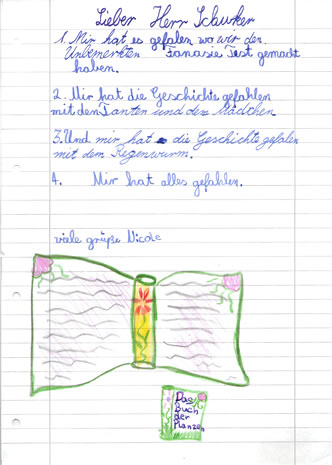 Lieber Herr Schurker
1. Mir hat es gefalen wo wir den
Unbemerkten Fanasie Test gemacht
haben.
2. Mir hat die Geschichte gefahlen
mit den Tanten und den Mädchen
3. Und mir hat die Geschichte gefalen
mit dem Regenwurm.
4. Mir hat alles gefahlen.
viele grüße Nicole
Das
Buch
der
Planzen